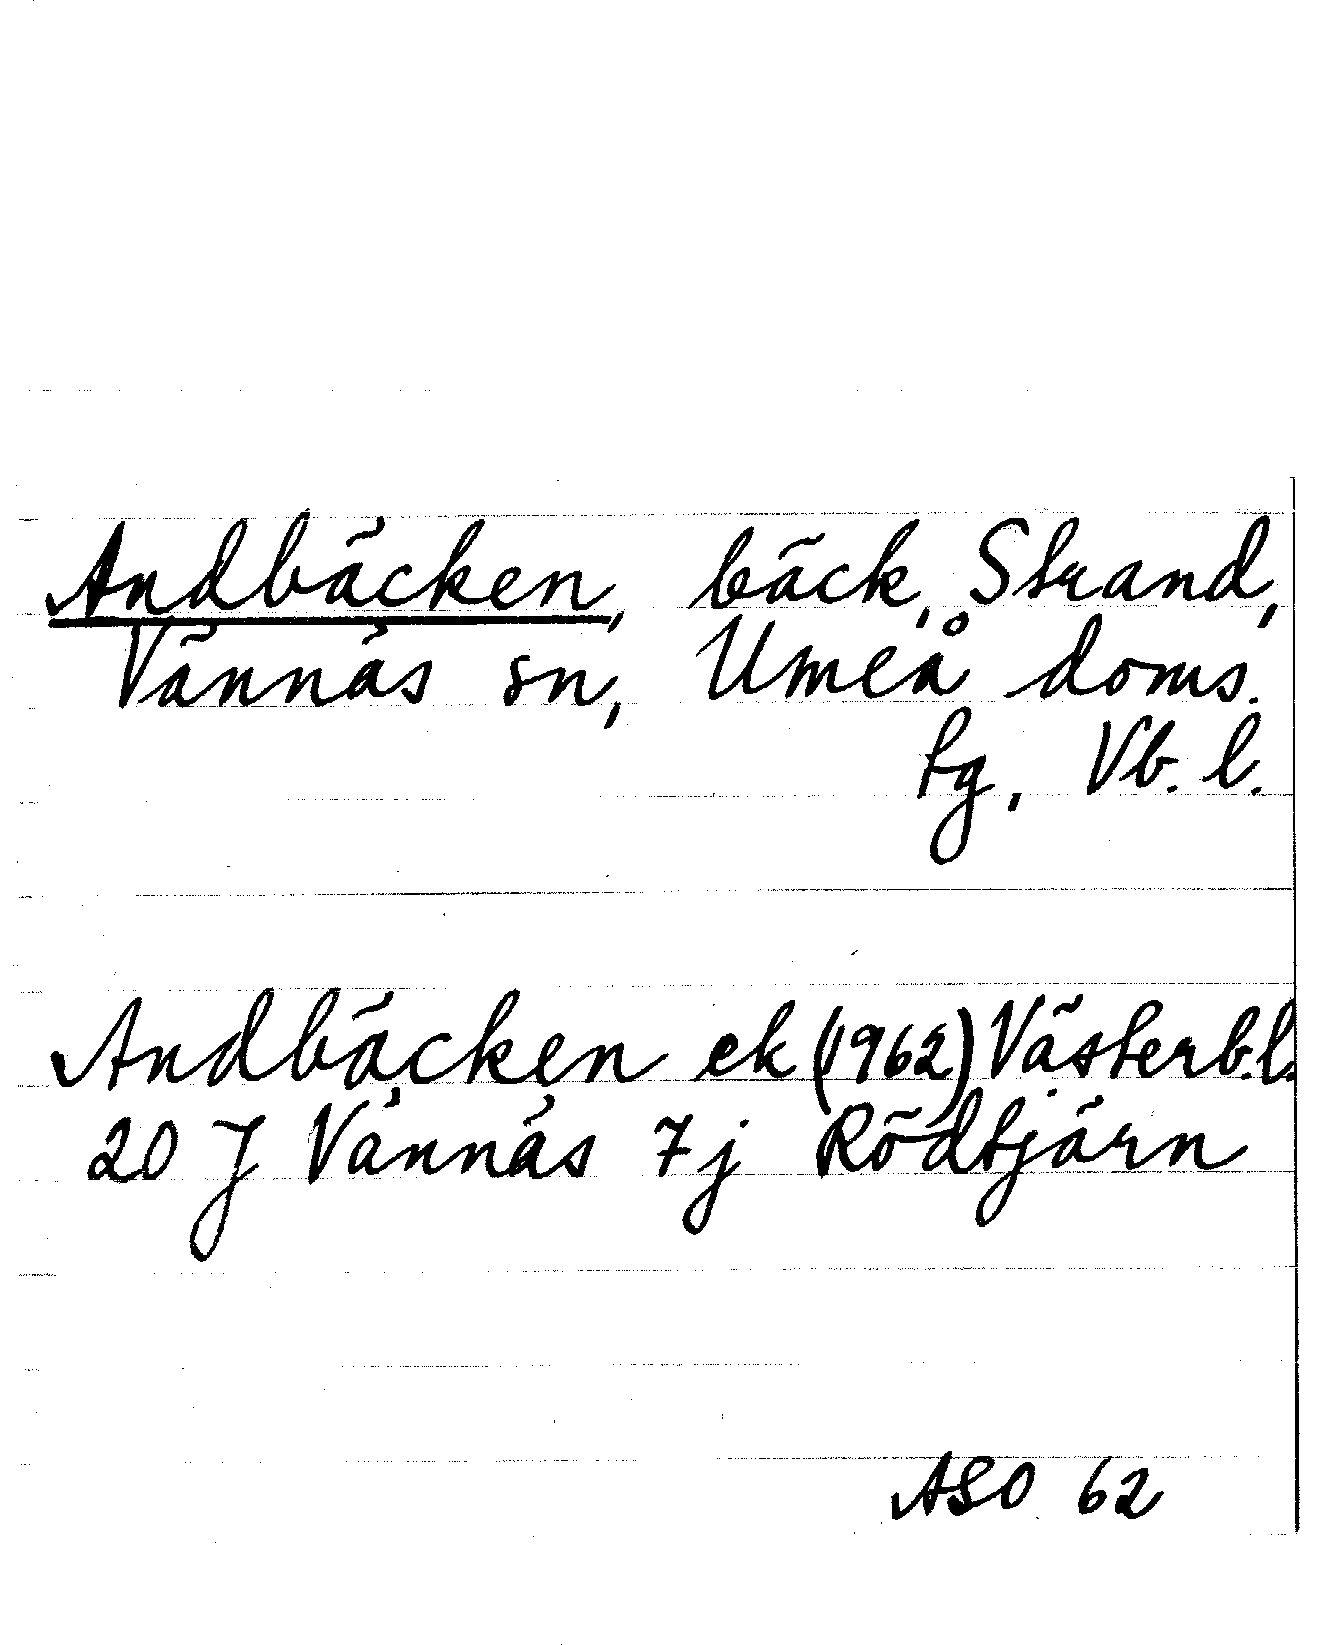 Andbäcken, bäck, Strand,
Vännäs sn, Umeå doms.
tg, Vb. l.
Andbäcken ek (1962) Västerb.l.
20 J Vännäs 7j Rödtjärn
ASO 62